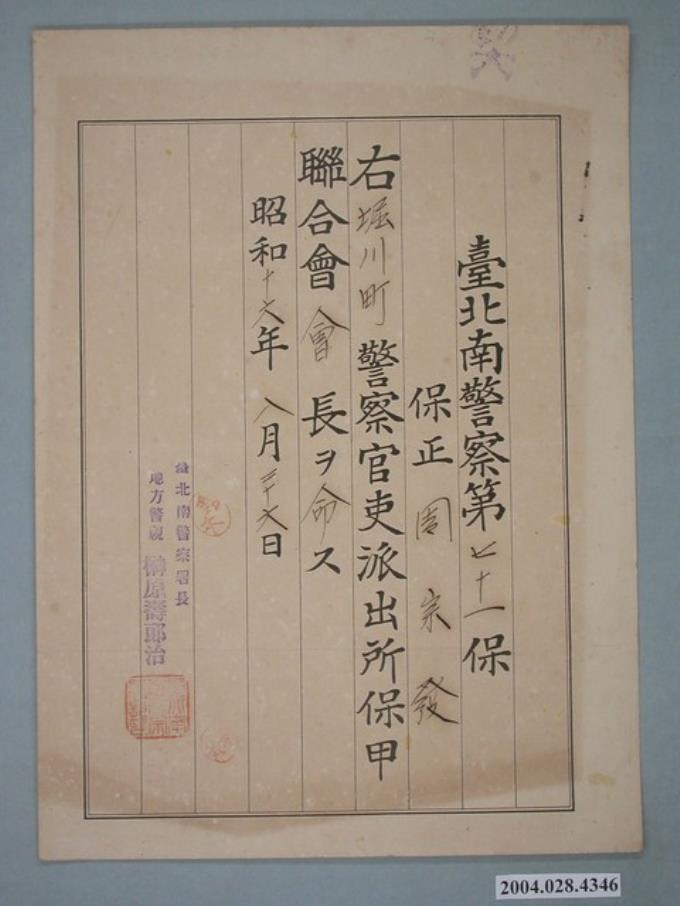 臺北南警察第七十一保
保正 周宗發
右堀川町警察官吏派出所保甲
聯合會會長ヲ命ス
昭和十六年八月二十六日
臺北南警察署長
地方警視 榊原壽郎治
2004.028.4346